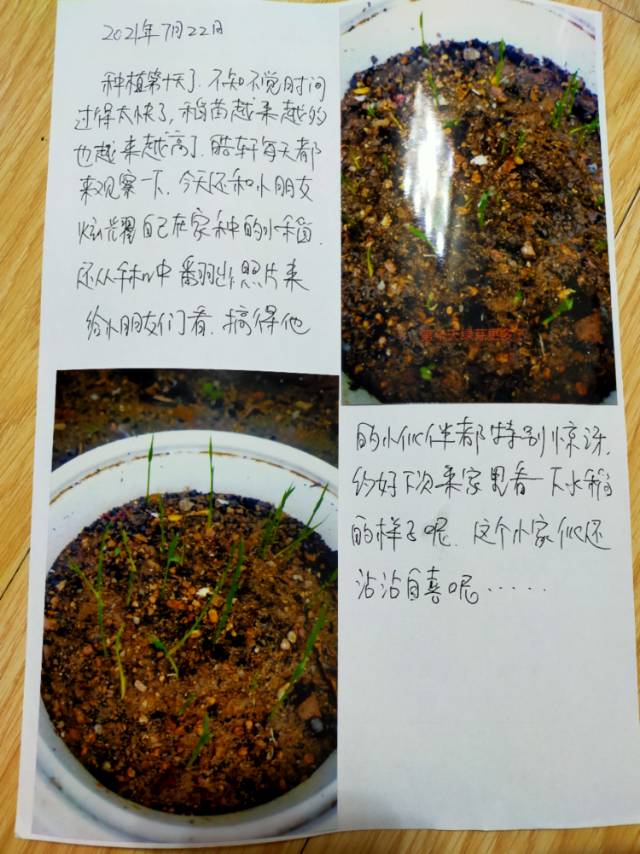 2021年7月22日
种植第十天了.不知不觉时间
过得太快了,稻苗越来越多的
也越来越高了.皓轩每天都
来观察一下.今天还和小朋友
炫耀自己在家种的小稻苗.
还从手机中翻出照片来
给小朋友们看.搞得他
的小伙伴都特别惊讶.
约好下次来家里看一下水稻
的样子呢.这个小家伙还
沾沾自喜呢······